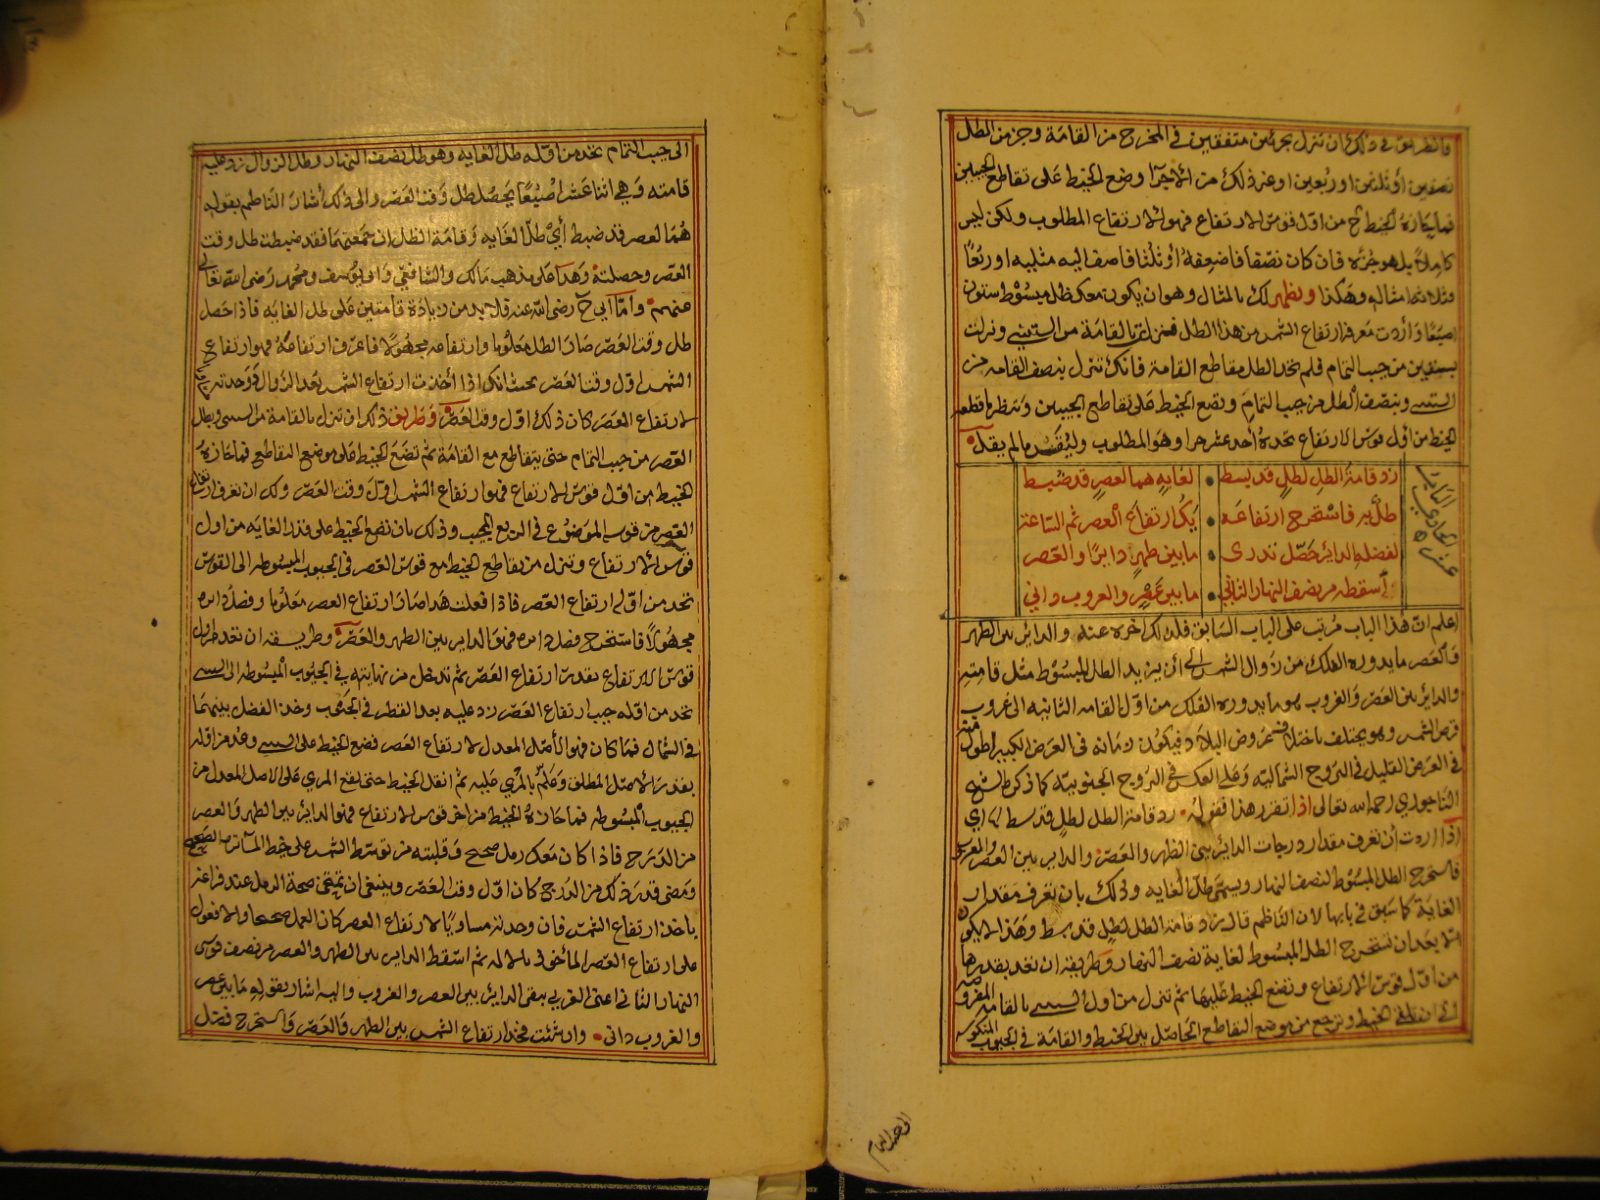 والطريق في ذلك ان تنزل بجزئين متفقين في المخرج من القامة وجزء من الظل
نصفين أو ثلثين او ربعين او غير ذلك من الاجزا وضع الخيط على تقاطع الجيبين
فما حازه الخيط من اول قوس الارتفاع فهو الارتفاع المطلوب ولكن ليس
كاملا بل هو جزؤه فان كان نصفا فاضعفه أو ثلثا فاضف اليه مثليه او ربعا
وثلاثة امثاله وهكذا ويظهر لك بالمثال وهو ان يكون معك ظل مبسوط ستون
اصبعا وأردت معرفة ارتفاع الشمس من هذا الظل فنزلت بالقامة من الستيني ونزلت
بستين من جيب التمام فلم تجد الظل مقاطع القامة فانك تنزل بنصف القامة من
الستيني وبنصف الظل من جيب التمام وتضع الخيط على تقاطع الجيبين وتنظر ما قطعه
الخيط من اول قوس الارتفاع تجده أحد عشر جزا وهو المطلوب وليقس ما لم يقل
الباب الحادي عشر
زد قامة الظل لظل قد بسط • لغايه هما لعصر قد ضبط
ظل فاستخرج ارتفاعه • يك ارتفاع العصر ثم الساعة
لفضله الدائر حصل تدري • ما بين ظهر دايرا والعصر
أسقطه من نصف النهار الثاني • ما بين عصر والغروب داني
اعلم ان هذا الباب مرتب على الباب السابق فلذلك اخره عنه والدائر بين الظهر
والعصر ما يدوره الفلك من زوال الشمس الى أن يزيد الظل المبسوط مثل قامته
والدائر بين العصر والغروب هو ما يدوره الفلك من اول القامة الثانيه الى غروب
قرص الشمس وهو يختلف باختلاف عروض البلاد فيكون زمانه في العرض الكبير اطول منه
في العرض القليل في البروج الشمالية وعلى العكس في البروج الجنوبية كما ذكره
التاجوري رحمه الله تعالى اذا تقرر هذا فقوله زد قامة الظل لظل قد بسط اي
اذا اردت أن تعرف مقدار درجات الدائر بين الظهر والعصر والداير بين العصر والغروب
فاستخرج الظل المبسوط لنصف النهار ويسمى ظل الغايه وذلك بان تعرف مقدار
الغاية كما سبق في بابها لان الناظم قال زد قامة الظل لظل قد بسط وهذا لا يكون
الا بعد ان تستخرج الظل المبسوط لغاية نصف النهار وطريقه ان تعد بقدرها
من اول قوس الارتفاع وتضع الخيط عليها ثم تنزل من اول الستيني بالقامة المفروضه
الى ان تلقى الخيط وترجع من موضع التقاطع الحاصل بين الخيط والقامة في الجيوب المنكوسه
الى جيب التمام
الى جيب التمام تجد من اوله ظل الغايه وهو ظل نصف النهار وظل الزوال زد عليه
قامته وهي اثنا عشر اصبعا يحصل ظل وقت العصر والى ذلك أشار الناظم بقوله
هما لعصر قد ضبط أي ظل الغايه وقامة الظل ان جمعتهما فقد ضبطت ظل وقت
العصر وحصلته وهذا على مذهب مالك والشافعي وابو يوسف ومحمد رضي الله تعالى
عنهم وأما أبي ح رضي الله عنه فلا بد من زيادة قامتين على ظل الغايه فاذا حصل
ظل وقت العصر صار الظل معلوما وارتفاعه مجهولا فاعرف ارتفاعه فهو ارتفاع
الشمس اول وقت العصر بحيث انك اذا أخذت ارتفاع الشمس بعد الزوال ووجدته
لارتفاع العصر كان ذلك اول وقت العصر وطريق ذلك ان تنزل بالقامة من الستيني وبظل
العصر من جيب التمام حتى يتقاطع مع القامة ثم تضع الخيط على موضع التقاطع فما حازه
الخيط من اول قوس الارتفاع فهو ارتفاع الشمس اول وقت العصر ولك ان تعرف ارتفاع
العصر من قوسه الموضوع في الربع المجيب وذلك بان تضع الخيط على قدر الغايه من اول
قوس الارتفاع وتنزل من تقاطع الخيط مع قوس العصر في الجيوب المبسوطه الى القوس
تجد من اوله ارتفاع العصر فاذا فعلت هذا صار ارتفاع العصر معلوما وفضل دايره
مجهولا فاستخرج فضل دايره فهو الداير بين الظهر والعصر وطريقه ان تعد من اول
قوس الارتفاع بقدر ارتفاع العصر ثم تدخل من نهايته في الجيوب المبسوطه الى الستيني
تجد من اوله جيب ارتفاع العصر زد عليه بعد القطر في الجنوب وخذ الفضل بينهما
في الشمال فما كان فهو الأصل المعدل لارتفاع العصر فضع الخيط على الستيني وعد من اوله
بقدر الاصل المطلق وعلم بالمري عليه ثم انقل الخيط حتى يقع المري على الاصل المعدل من
الجيوب المبسوطه فما حازه الخيط من اخر قوس الارتفاع فهو الدائر بين الظهر والعصر
من الدرج فاذا كان معك رمل صحيح وقلبته من توسط الشمس على خط
ومضى قدر ذلك من الدرج كان اول وقت العصر وينبغي ان تمتحن صحة الرمل عند فراغه
باخذ ارتفاع الشمس فان وجدته مساويا لارتفاع العصر كان العمل صحيحا والا فعول
على ارتفاع العصر المأخوذ بالاله ثم اسقط الداير بين الظهر والعصر من نصف قوس
النهار الثاني اعني الغربي يبقى الدائر بين العصر والغروب واليه اشار بقوله ما بين عصر
والغروب داني • وان شئت فخذ ارتفاع الشمس بين الظهر والعصر واستخرج فضل